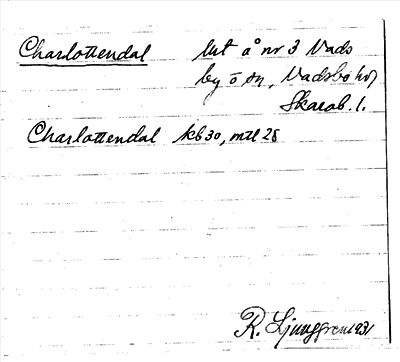 Charlottendal lht å nr 3 Vads
by ö sn, Vadsbo hd,
Skarab. l.
Charlottendal kb 30, mtl 28
R. Ljunggren 1931